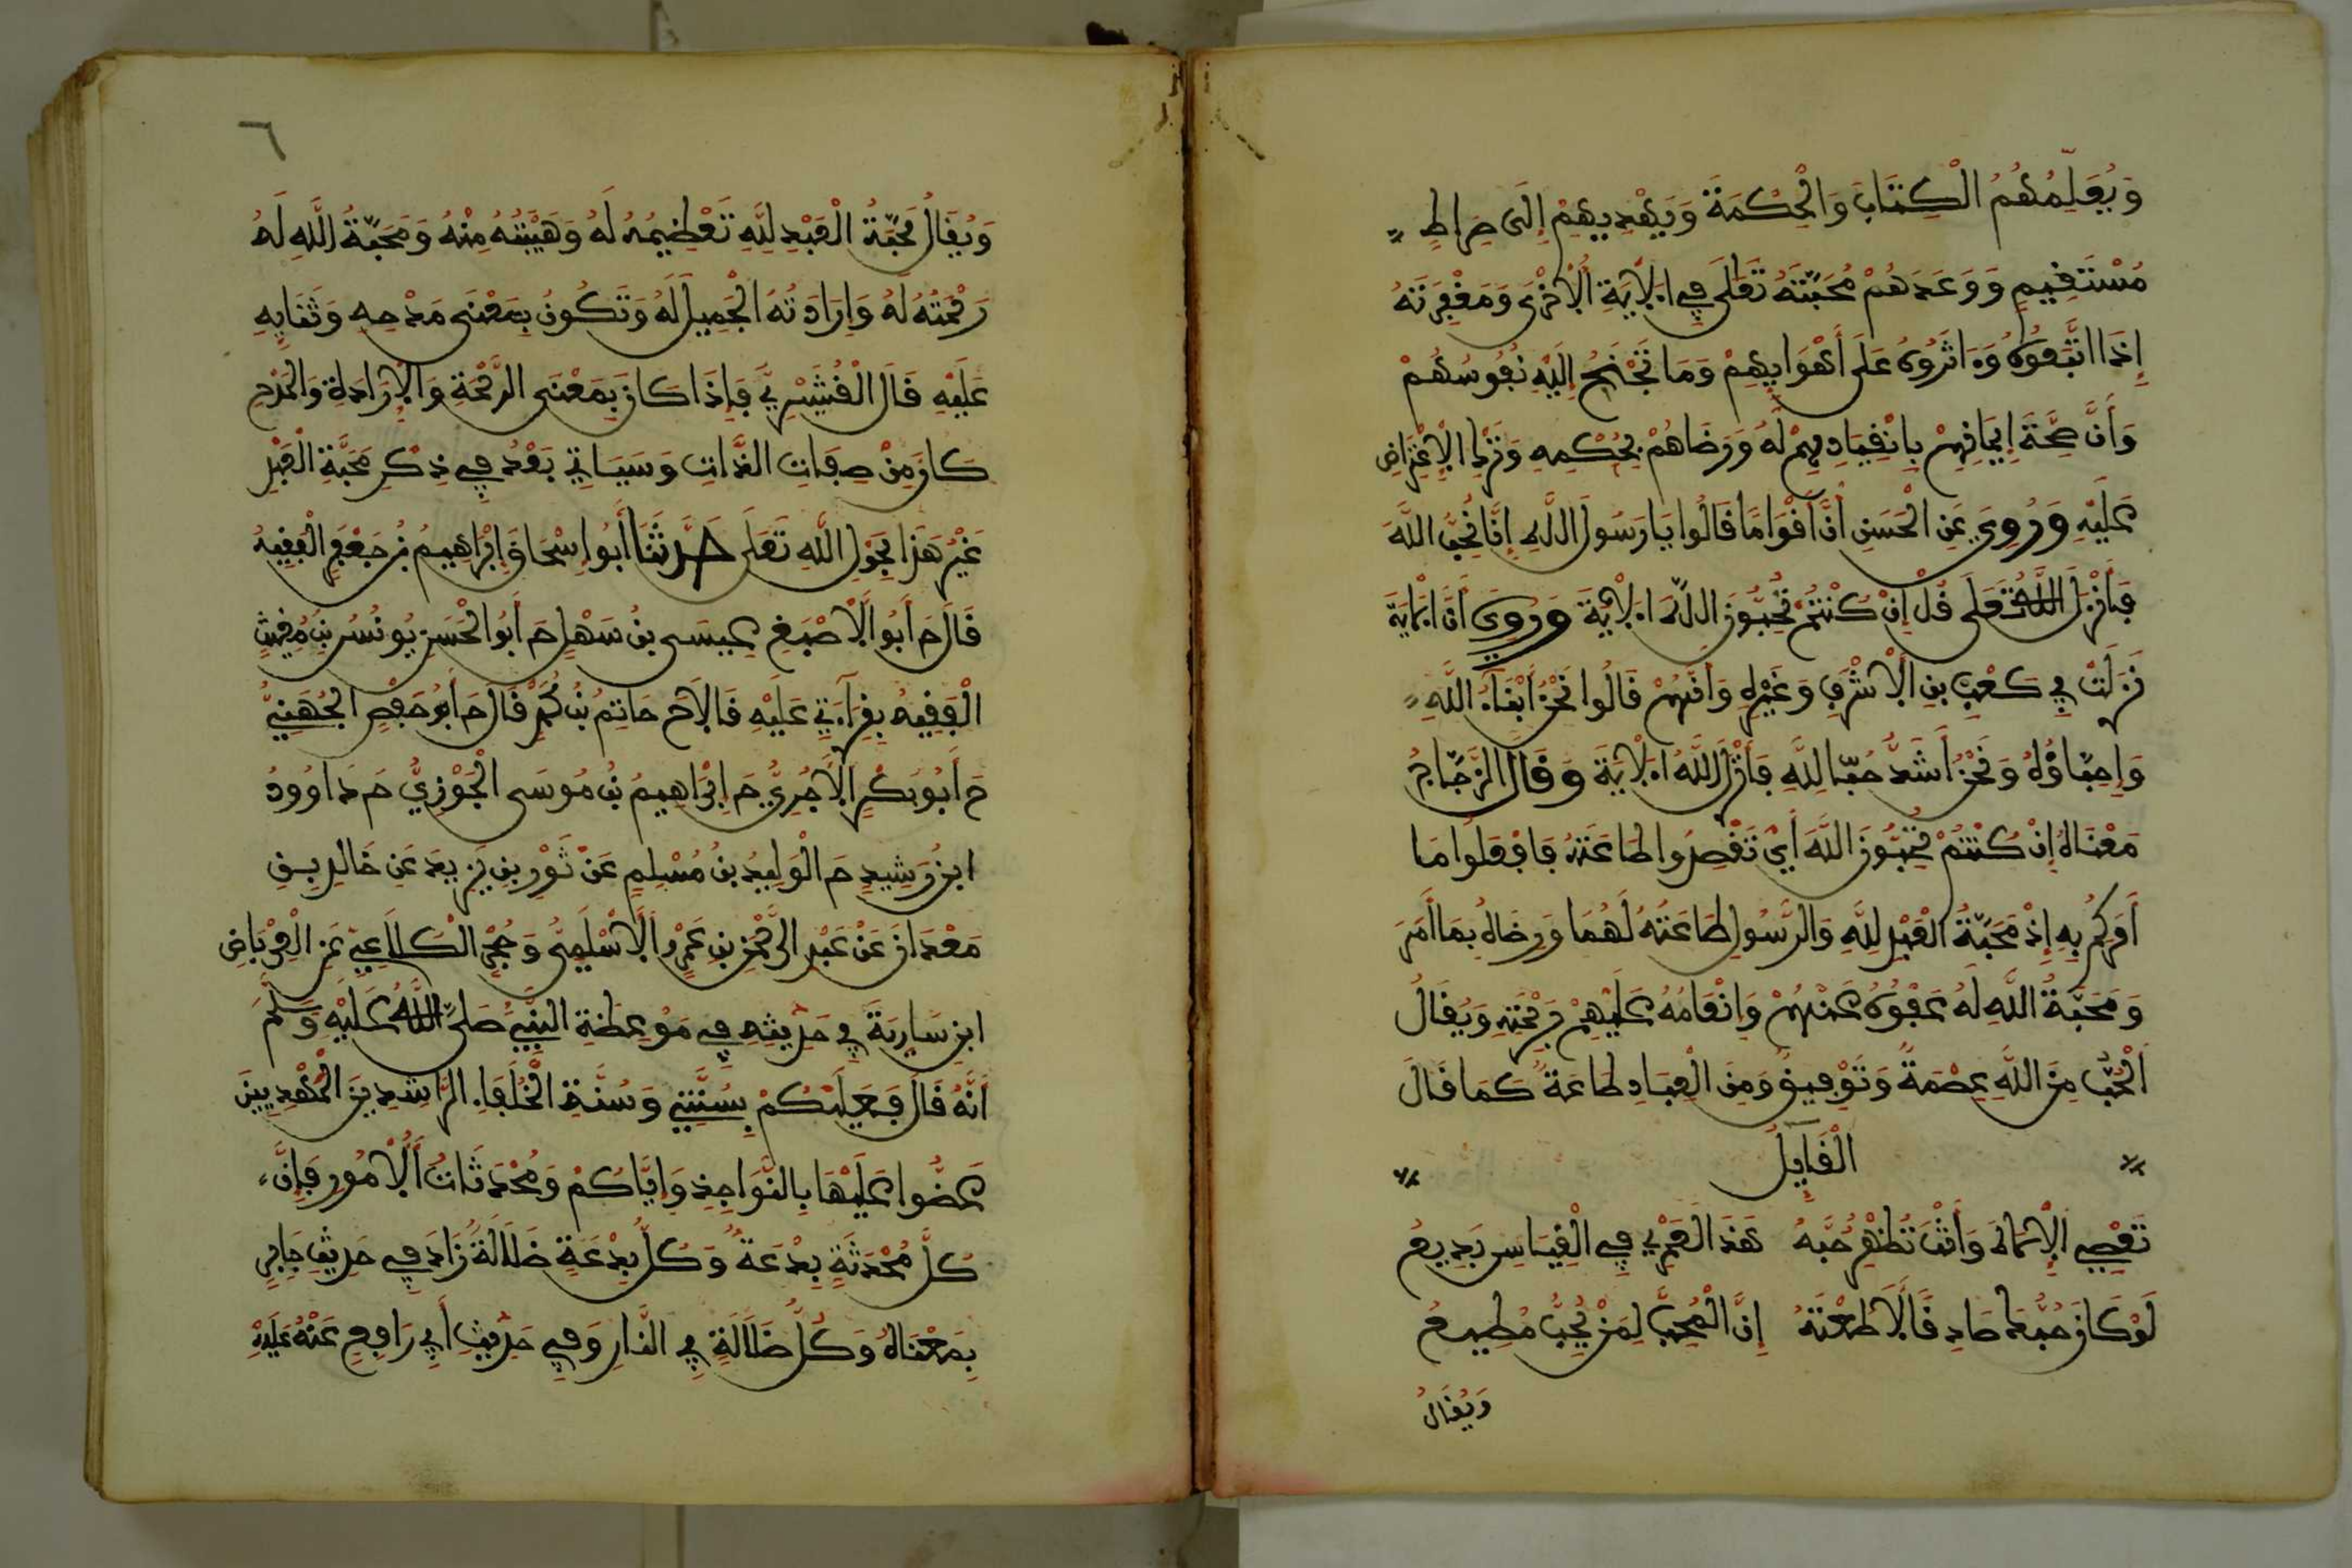 وَيُعَلِّمُهُمُ الْكِتَابَ وَالْحِكْمَةَ وَيَهْدِيهِمْ إِلَى صِرَاطٍ
مُسْتَقِيمٍ وَوَعَدَهُمْ مَحَبَّتَهُ تَعَلَى فِي الْآيَةِ الْأُخْرَى وَمَغْفِرَتَهُ
إِذَا اتَّبَعُوهُ وَءَاثَرُوهُ عَلَى أَهْوَايِهِمْ وَمَا تَجْنَحُ إِلَيْهِ نُفُوسُهُمْ
وَأَنَّ صِحَّةَ إِيمَانِهِمْ بِانْقِيَادِهِمْ لَهُ وَرِضَاهُمْ بِحُكْمِهِ وَتَرْكِ الْاِعْتِرَاضِ
عَلَيْهِ وَرُوِيَ عَنِ الْحَسَنِ أَنَّ أَقْوَامًا قَالُوا يَا رَسُولَ اللَّهِ إِنَّا نُحِبُّ اللَّهَ
فَأَنْزَلَ اللَّهُ تَعَلَى قُلْ إِنْ كُنْتُمْ تُحِبُّونَ اللَّهَ الْآيَةَ وَرُوِيَ أَنَّ الْآيَةَ
نَزَلَتْ فِي كَعْبِ بْنِ الْأَشْرَفِ وَغَيْرِهِ وَأَنَّهُمْ قَالُوا نَحْنُ أَبْنَاءُ اللَّهِ
وَأَحِبَّاؤُهُ وَنَحْنُ أَشَدُّ حُبًّا لِلَّهِ فَأَنْزَلَ اللَّهُ الْآيَةَ وَقَالَ الزَّجَّاجُ
مَعْنَاهُ إِنْ كُنْتُمْ تُحِبُّونَ اللَّهَ أَيْ تَقْصِدُوا طَاعَتَهُ فَافْعَلُوا مَا
أَمَرَكُمْ بِهِ إِذْ مَحَبَّةُ الْعَبْدِ لِلَّهِ وَالرَّسُولِ طَاعَتُهُ لَهُمَا وَرِضَاهُ بِمَا أَمَرَ
وَمَحَبَّةُ اللَّهِ لَهُ عَفْوُهُ عَنْهُمْ وَإِنْعَامُهُ عَلَيْهِمْ بِرَحْمَتِهِ وَيُقَالُ
اَلْحُبُّ مِنَ اللَّهِ عِصْمَةٌ وَتَوْفِيقٌ وَمِنَ الْعِبَادِ طَاعَةٌ كَمَا قَالَ
الْقَايِلُ
تَعْصِي الْإِلَهَ وَأَنْتَ تُظْهِرُ حُبَّهُ هَذَا لَعَمْرِي فِي الْقِيَاسِ بَدِيعُ
لَوْ كَانَ حُبُّكَ صَادِقًا لَأَطَعْتَهُ إِنَّ الْمُحِبَّ لِمَنْ يُحِبُّ مُطِيعُ
وَيُقَالُ
٦
وَيُقَالُ مَحَبَّةُ الْعَبْدِ لِلَّهِ تَعْظِيمُهُ لَهُ وَهَيْبَتُهُ مِنْهُ وَمَحَبَّةُ اللَّهِ لَهُ
رَحْمَتُهُ لَهُ وَإِرَادَتُهُ الْجَمِيلَ لَهُ وَتَكُونُ بِمَعْنَى مَدْحِهِ وَثَنَايِهِ
عَلَيْهِ قَالَ الْقُشَيْرِيُّ فَإِذَا كَانَ بِمَعْنَى الرَّحْمَةِ وَالْإِرَادَةِ وَالْمَدْحِ
كَانَ مِنْ صِفَاتِ الذَّاتِ وَسَيَاتِي بَعْدُ فِي ذِكْرِ مَحَبَّةِ الْعَبْدِ
غَيْرُ هَذَا بِحَوْلِ اللَّهِ تَعَلَى حَدَّثَنَا أَبُو إِسْحَاقَ إِبْرَاهِيمُ بْنُ جَعْفَرٍ الْفَقِيهُ
قَالَ حَ أَبُو الْأَصْبَغِ عِيسَى بْنُ سَهْلٍ حَ أَبُو الْحَسَنِ يُونُسُ بْنُ مُغِيثٍ
الْفَقِيهُ بِقِرَاءَتِي عَلَيْهِ قَالَا حَ حَاتِمُ بْنُ مُحَمَّدٍ قَالَ حَ أَبُو حَفْصٍ الْجُهَنِيُّ
حَ أَبُو بَكْرٍ الْآجُرِيُّ حَ إِبْرَاهِيمُ بْنُ مُوسَى الْجَوْزِيُّ حَ دَاوُودُ
ابْنُ رَشِيدٍ حَ الْوَلِيدُ بْنُ مُسْلِمٍ عَنْ ثَوْرِ بْنِ يَزِيدَ عَنْ خَالِدِ بْنِ
مَعْدَانَ عَنْ عَبْدِ الرَّحْمَنِ بْنِ عَمْرٍو الْأَسْلَمِيِّ وَحُجْرٍ الْكَلَاعِيِّ عَنِ الْعِرْبَاضِ
ابْنِ سَارِيَةَ فِي حَدِيثِهِ فِي مَوْعِظَةِ النَّبِيِّ صَلَّى اللَّهُ عَلَيْهِ وَسَلَّمَ
أَنَّهُ قَالَ فَعَلَيْكُمْ بِسُنَّتِي وَسُنَّةِ الْخُلَفَاءِ الرَّاشِدِينَ الْمَهْدِيِّينَ
عَضُّوا عَلَيْهَا بِالنَّوَاجِذِ وَإِيَّاكُمْ وَمُحْدَثَاتِ الْأُمُورِ فَإِنَّ
كُلَّ مُحْدَثَةٍ بِدْعَةٌ وَكُلُّ بِدْعَةٍ ضَلَالَةٌ زَادَ فِي حَدِيثِ جَابِرٍ
بِمَعْنَاهُ وَكُلُّ ضَلَالَةٍ فِي النَّارِ وَفِي حَدِيثِ أَبِي رَافِعٍ عَنْهُ عَلَيْهِ